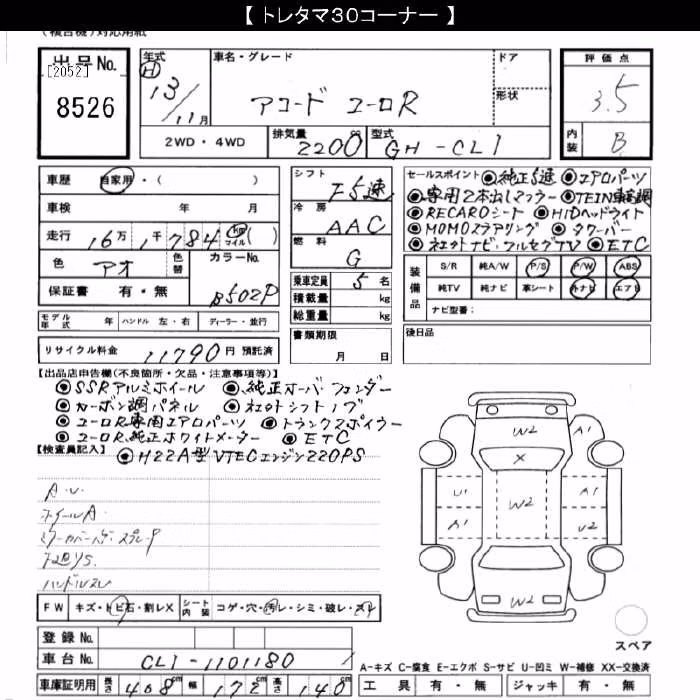 【 トレタマ30コーナー 】
(複合機)対応用紙
出品No.
[2052]
8526
年式
H
13/11月
車名・グレード
アコード ユーロR
ドア
形状
2WD・4WD
排気量
2200cc
型式
GH-CL1
評価点
3.5
内装
B
車歴 自家用・( )
車検 年 月
走行 16万 1千 784 km マイル ( )
色 アオ 色替 カラーNo. B502P
保証書 有・無
シフト F5速
冷房 AAC
燃料 G
乗車定員 5名
積載量 kg
総重量 kg
セールスポイント ◉純正5速 ◉エアロパーツ
◉専用2本出しマフラー ◉TEIN車高調
◉RECAROシート ◉HIDヘッドライト
◉MOMOステアリング ◉タワーバー
◉社外ナビ・フルセグTV ◉ETC
装備品
S/R 純A/W P/S P/W ABS
純TV 純ナビ 革シート 外ナビ エアB
ナビ型番:
モデル年式 年 ハンドル 左・右 ディーラー・並行
書類期限
月 日
後日品
リサイクル料金 11790円 預託済
【出品店申告欄(不良箇所・欠品・注意事項等)】
◉SSRアルミホイール ◉純正オーバーフェンダー
◉カーボン調パネル ◉社外シフトノブ
◉ユーロR専用エアロパーツ ◉トランクスポイラー
◉ユーロR純正ホワイトメーター ◉ETC
【検査員記入】 ◉H22A型VTECエンジン220PS
A.U.
ホイールA
ハンドルスレ
FW キズ・トビ石・割レX シート内装 コゲ・穴・汚レ・シミ・破レ・スレ
W2 A1
X
U1 W2 A1
A1 U2
W2
スペア
登録No.
車台No. CL1-1101180
車庫証明用 長さ 468cm 幅 172cm 高さ 140cm
A-キズ C-腐食 E-エクボ S-サビ U-凹ミ W-補修 XX-交換済
工具 有・無 ジャッキ 有・無